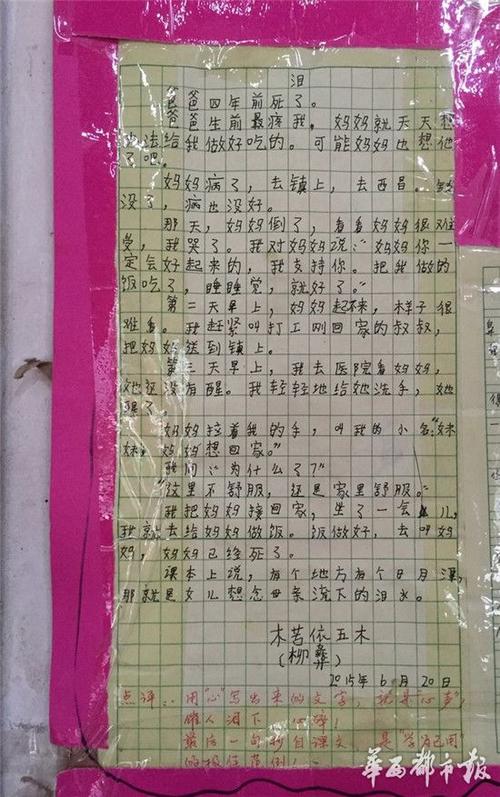 泪
爸爸四年前死了。
爸爸生前最疼我，妈妈就天天想
办法给我做好吃的。可能妈妈也想他
了吧。
妈妈病了，去镇上，去西昌。钱
没了，病也没好。
那天，妈妈倒了，看看妈妈很难
受，我哭了。我对妈妈说："妈妈你一
定会好起来的，我支持你。把我做的
饭吃了，睡睡觉，就好了。"
第二天早上，妈妈起不来，样子很
难看。我赶紧叫打工刚回家的叔叔，
把妈妈送到镇上。
第三天早上，我去医院看妈妈，
她还没有醒。我轻轻地给她洗手，她
醒了。
妈妈拉着我的手，叫我的小名"妹
妹，妈妈想回家。"
我问："为什么了？"
"这里不舒服，还是家里舒服。"
我把妈妈接回家，坐了一会儿，
我就去给妈妈做饭。饭做好，去叫妈
妈，妈妈已经死了。
课本上说，有个地方有个日月潭，
那就是女儿想念母亲流下的泪水。
木苦依五木
（柳彝）
2015年6月20日
点评：用"心"写出来的文字，就是"心声"，
催人泪下
最后一句抄自课文，是"学为己用"
的
华西都市报